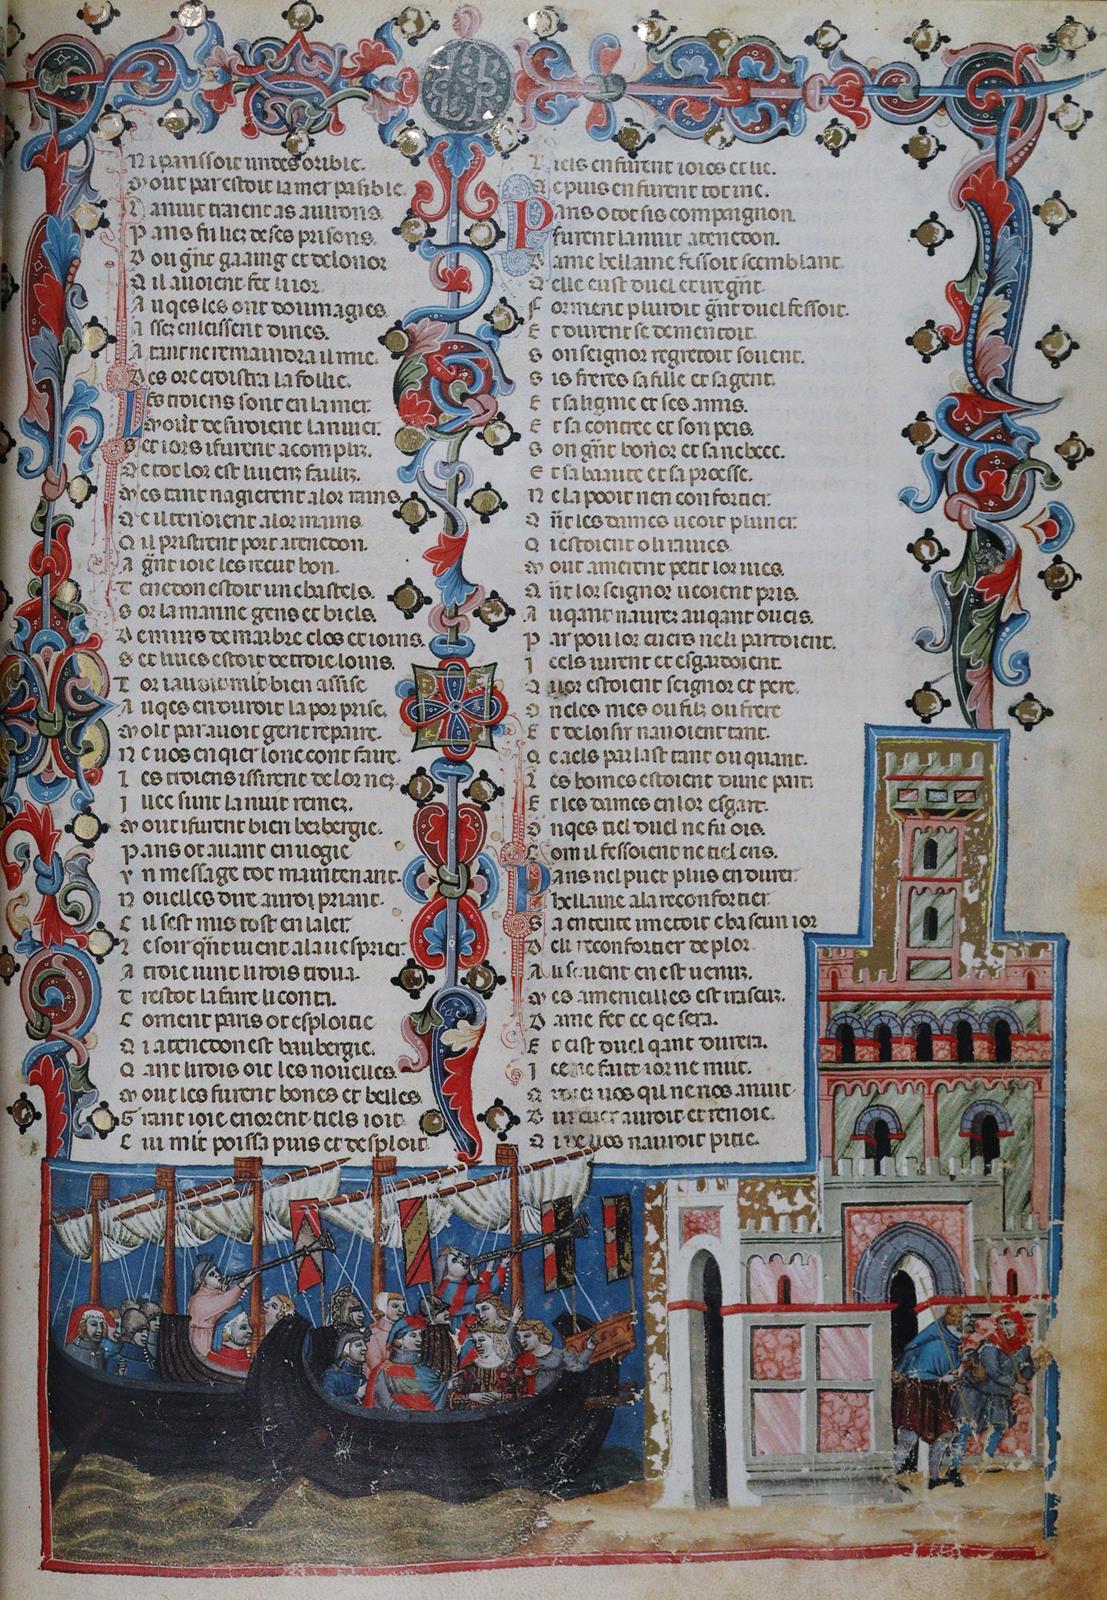 N i parissoit undes orible.
M out par estoit la mer pasible.
L anuit traient as aurons.
P aris fu liez de ses prisons.
D ou gnt gaaing et de lonor
Q il avoient fet lu ior.
A uqes les ont doumagies
A ssez en leissent dines.
A tant ne remaindra il mie.
D es ore croistra la follie.
L es troiens sont en la mer.
S et iors ifurent acompliz.
D e tot lor est li venz failliz.
M es tant nagierent a lor rains.
Q e il tenoient a lor mains.
Q il pristrent port a tenedon.
A gnt ioie les recut hon.
T enedon estoit uns chastels.
S or la marine gens et biels.
D e murs de marbre clos et ioins.
S et liues estoit de troie loins.
A uqes en duroit la porprise.
M olt par auoit gent repaire.
N e uos en qier lonc cont faire.
L es troiens issirent de lor nez.
I llec sunt la nuit remez.
M out ifurent bien herbergie.
P aris ot auant enuogie
V n message tot maintenant.
N ouelles dire au roi priant.
C il sest mis tost en laler.
L e soir qnt uient a la uesprier
A troie uint li rois troua.
T restot lafaire li conta.
C oment paris ot esploitie
Q i a tenedon est haubergie.
Q ant li rois oit les nouelles.
M out les furent bones et belles.
G rant ioie en orent tiels ioit.
C ui mlt poissa puis et desploit.
T iels en furent ioios et lie.
Q e puis en furent tot irie.
P aris o tot sis compaignon.
F urent la nuit a tenedon.
D ame hellaine fessoit semblant.
Q elle eust duel et ire gnt.
F orment ploroit gnt duel fessoit.
E t durent se dementoit.
S on seignor regretoit souent.
S is freres sa fille et sa gent.
E t sa lignie et ses amis.
E t sa contree et son pais.
S on gnt honor et sa richece.
E t sa biaute et sa proesse.
N e la pooit nen conforter.
Q nt les dames ueoit plurer.
Q i estoient o li rauies.
M out amerent petit lor uies.
Q nt lor seignor ueoient pris.
A uqant naurez auqant oucis.
P ar pou lor cuers neli partoient.
I cels uirent et esgardoient.
Q i lor estoient seignor et pere.
O ncles mes ou filz ou frere
E t de loisir nauoient tant.
Q a cels parlast tant ou quant.
L es homes estoient dune part.
E t les dames en lor esgart.
O nqes tiel duel ne fu ois.
C om il fessoient ne tiel cris.
P aris nel puet plus endurer
H ellaine ala reconforter.
S a entente i metoit chascun ior
D e li reconforter de plor.
A li souent en est uenuz.
M es a merueilles est irascuz.
D ame fet ce qe sera.
E t cist duel qant durera.
I ce ne faut ior ne nuit.
Q i de uos nauroit pitie.